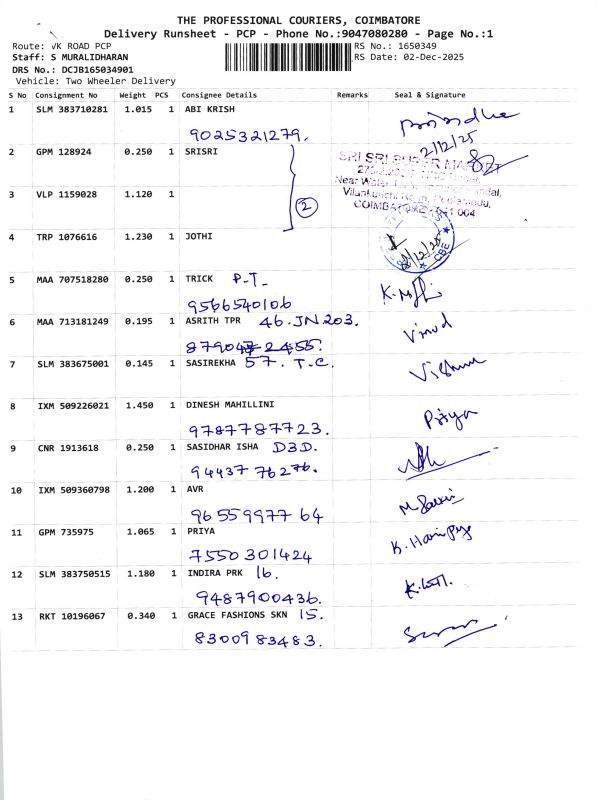 THE PROFESSIONAL COURIERS, COIMBATORE
Delivery Runsheet - PCP - Phone No.:9047080280 - Page No.:1
Route: VK ROAD PCP
RS No.: 1650349
Staff: S MURALIDHARAN
RS Date: 02-Dec-2025
DRS No.: DCJB165034901
Vehicle: Two Wheeler Delivery
S No Consignment No Weight PCS Consignee Details Remarks Seal & Signature
1 SLM 383710281 1.015 1 ABI KRISH
9025321279.
2/12/25
2 GPM 128924 0.250 1 SRISRI
SRI SRI SUPER MARKET
Near Water
COIMBATORE
3 VLP 1159028 1.120 1
2
4 TRP 1076616 1.230 1 JOTHI
CBE
5 MAA 707518280 0.250 1 TRICK P.T.
9566540106
6 MAA 713181249 0.195 1 ASRITH TPR 46.JN203.
Vinod
7 SLM 383675001 0.145 1 SASIREKHA 57. T.C.
8 IXM 509226021 1.450 1 DINESH MAHILLINI Priya
9787787723.
9 CNR 1913618 0.250 1 SASIDHAR ISHA D3D.
9443776276.
10 IXM 509360798 1.200 1 AVR
9655997764
11 GPM 735975 1.065 1 PRIYA
7550301424
12 SLM 383750515 1.180 1 INDIRA PRK 16.
9487900436.
13 RKT 10196067 0.340 1 GRACE FASHIONS SKN 15.
8300983483.